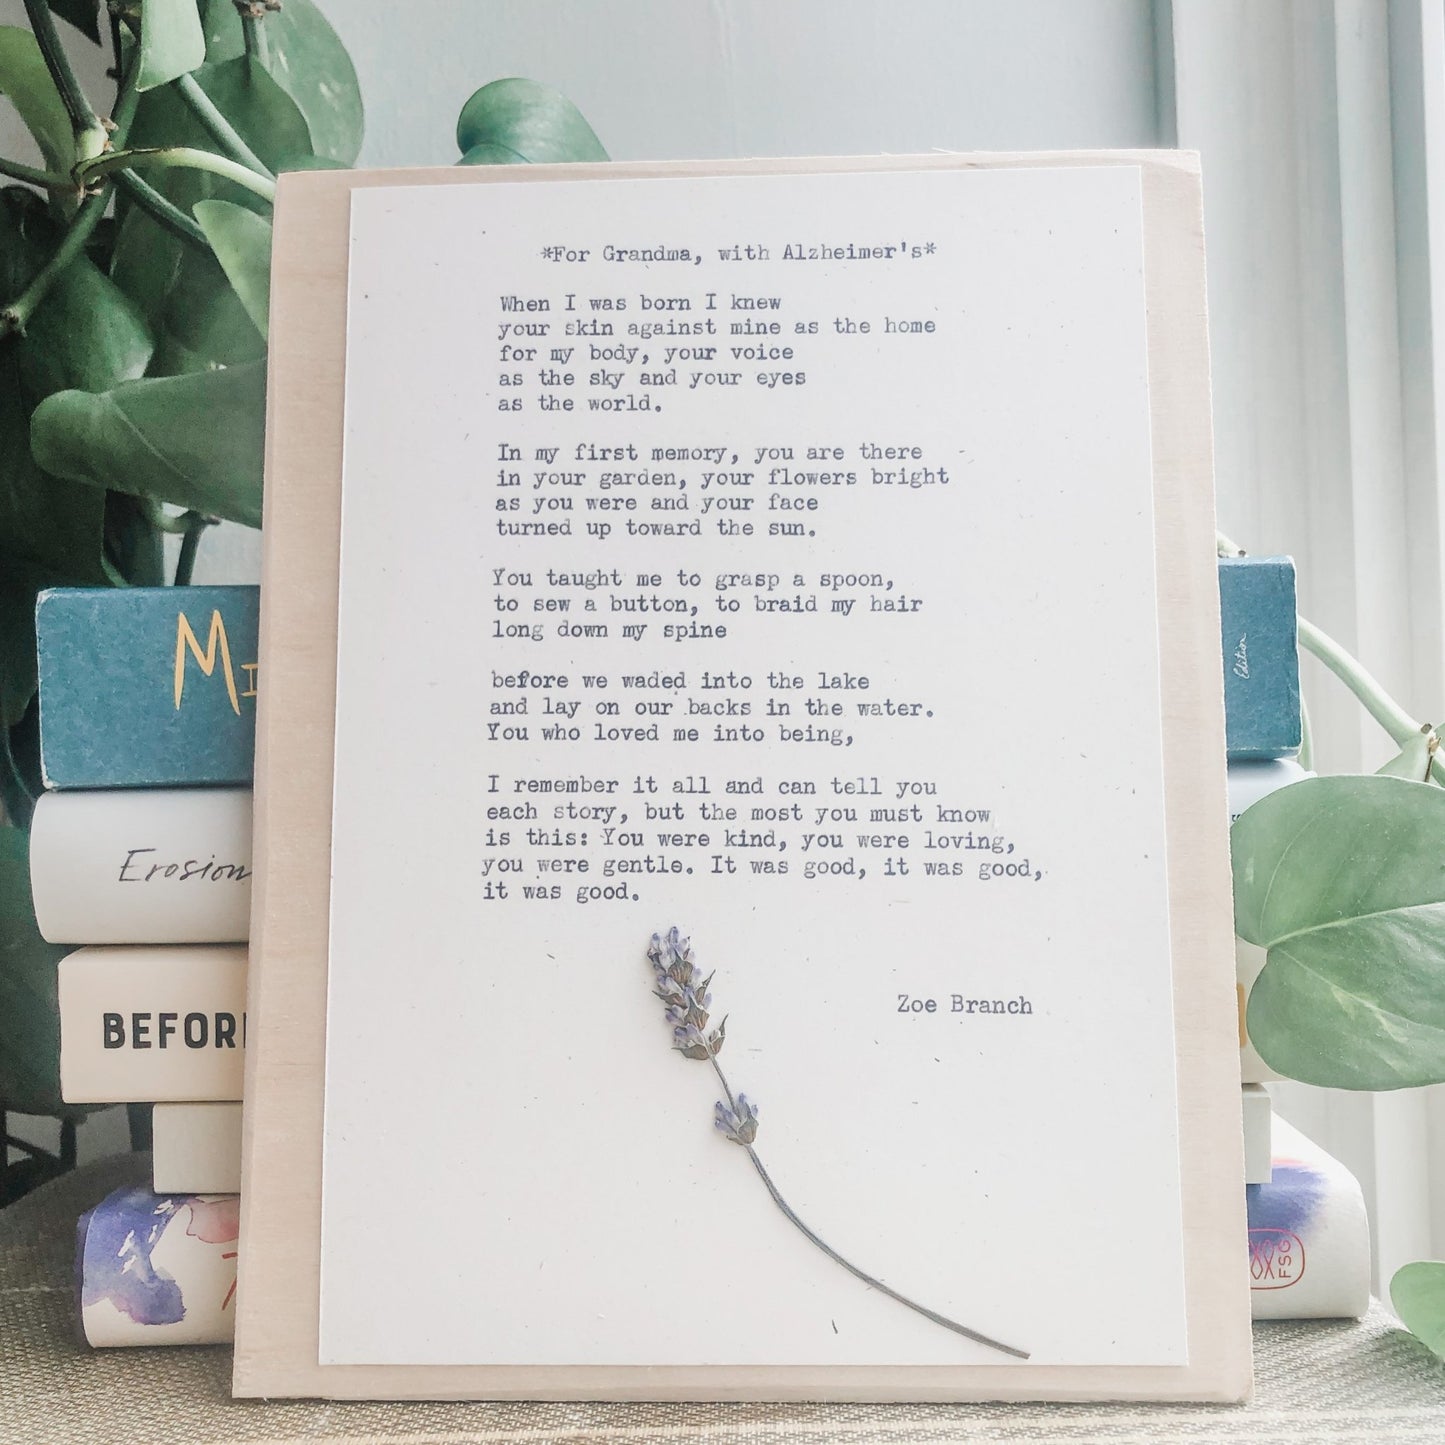 *For Grandma, with Alzheimer's*
When I was born I knew
your skin against mine as the home
for my body, your voice
as the sky and your eyes
as the world.
In my first memory, you are there
in your garden, your flowers bright
as you were and your face
turned up toward the sun.
You taught me to grasp a spoon,
to sew a button, to braid my hair
long down my spine
before we waded into the lake
and lay on our backs in the water.
You who loved me into being,
I remember it all and can tell you
each story, but the most you must know
is this: You were kind, you were loving,
you were gentle. It was good, it was good,
it was good.
Zoe Branch
Erosion
BEFOR
Edition
FSG